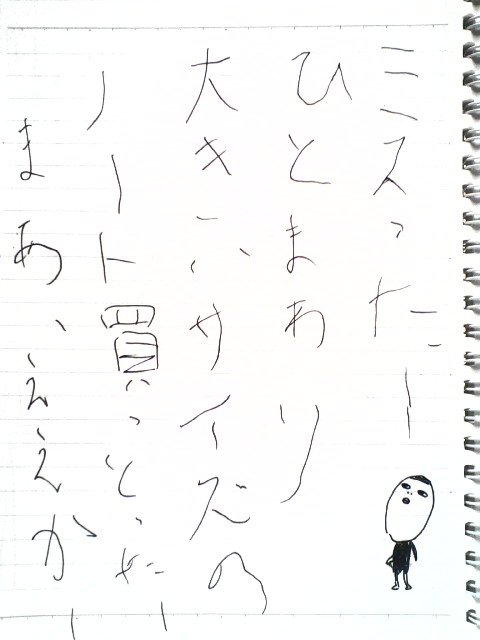 ミスったー
ひとまわり
大きいサイズの
ノート買っとったー
まあ、ええかー